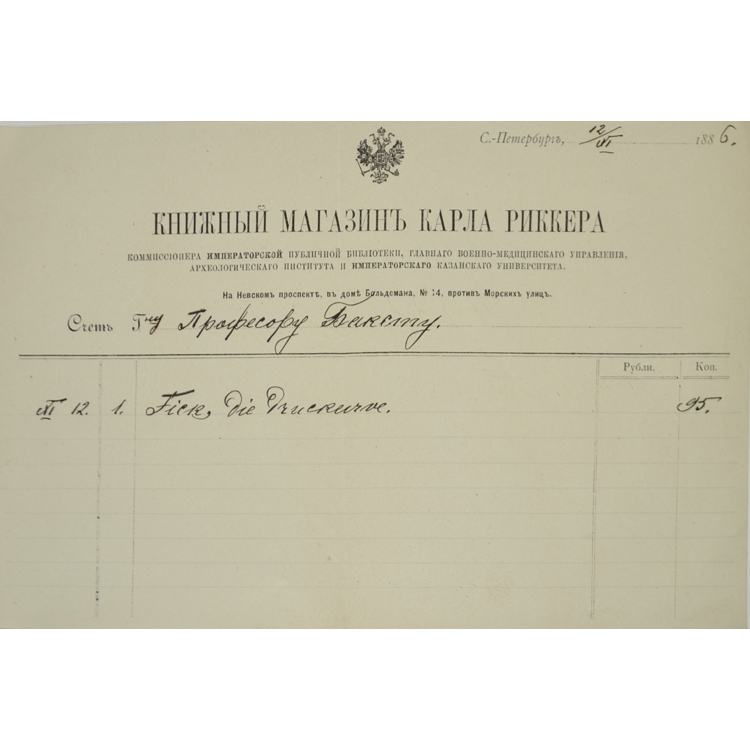 С.-Петербургъ, 12/XI 1886.
КНИЖНЫЙ МАГАЗИНЪ КАРЛА РИККЕРА
КОММИССІОНЕРА ИМПЕРАТОРСКОЙ ПУБЛИЧНОЙ БИБЛІОТЕКИ, ГЛАВНАГО ВОЕННО-МЕДИЦИНСКАГО УПРАВЛЕНІЯ,
АРХЕОЛОГИЧЕСКАГО ИНСТИТУТА И ИМПЕРАТОРСКАГО КАЗАНСКАГО УНИВЕРСИТЕТА.
На Невскомъ проспектѣ, въ домѣ Больдемана, № 14, противъ Морскихъ улицъ.
Счетъ Гну Професору Баксту.
Рубли. Коп.
XI 12. 1. Fick, Die Druckurve. 95.